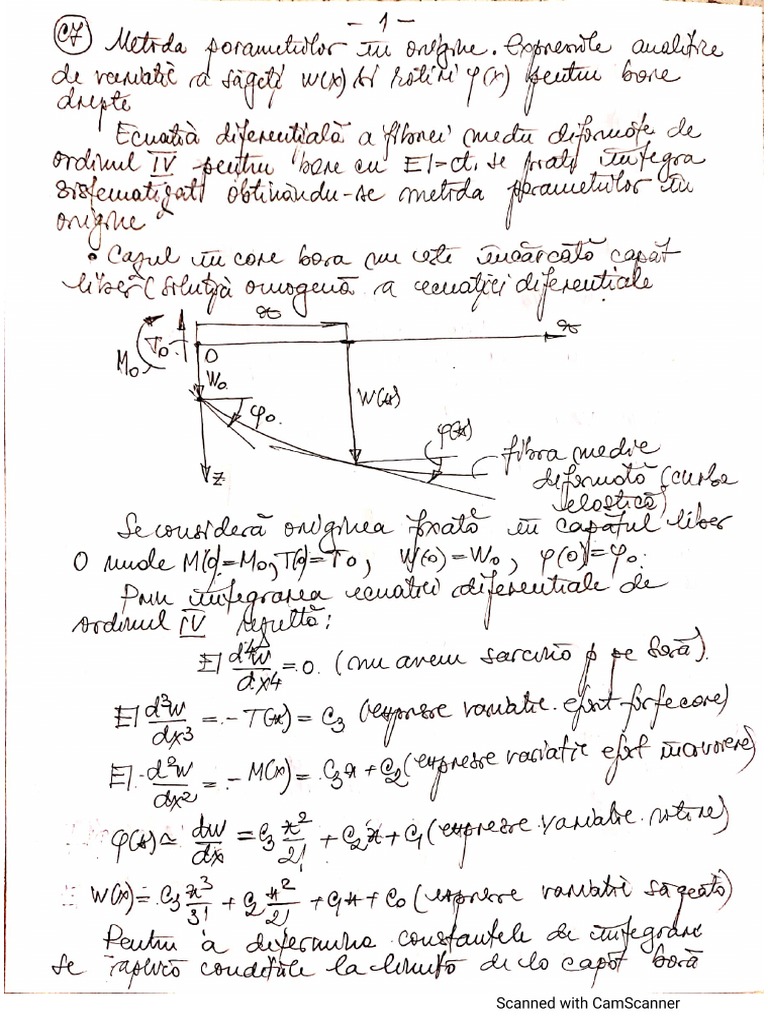 - 1 -
C7 Metoda parametrilor în origine. Expresiile analitice
de variație a săgeții w(x) și rotirii φ(x) pentru bare
drepte
Ecuația diferențială a fibrei medii deformate de
ordinul IV pentru bare cu EI=ct. se poate integra
sistematizat obținându-se metoda parametrilor în
origine
• Cazul în care bara nu este încărcată capăt
liber (soluția omogenă a ecuației diferențiale
x x
M0 T0 O
W0 W(x)
φ0 φ(x)
z
fibra medie
deformată (curba
elastică)
Se consideră originea fixată în capătul liber
O unde M(0)=M0, T(0)=T0, W(0)=W0, φ(0)=φ0.
Prin integrarea ecuației diferențiale de
ordinul IV rezultă:
EI d⁴w/dx⁴ = 0. (nu avem sarcină p pe bară).
EI d³w/dx³ = -T(x) = C3 (expresie variație efort forfecare)
EI d²w/dx² = -M(x) = C3x + C2 (expresie variație efort încovoiere)
φ(x) ≃ dw/dx = C3 x²/2! + C2x + C1 (expresie variație rotire)
W(x) = C3 x³/3! + C2 x²/2! + C1x + C0 (expresie variație săgeată)
Pentru a determina constantele de integrare
se aplică condițiile la limită de la capăt bară
Scanned with CamScanner